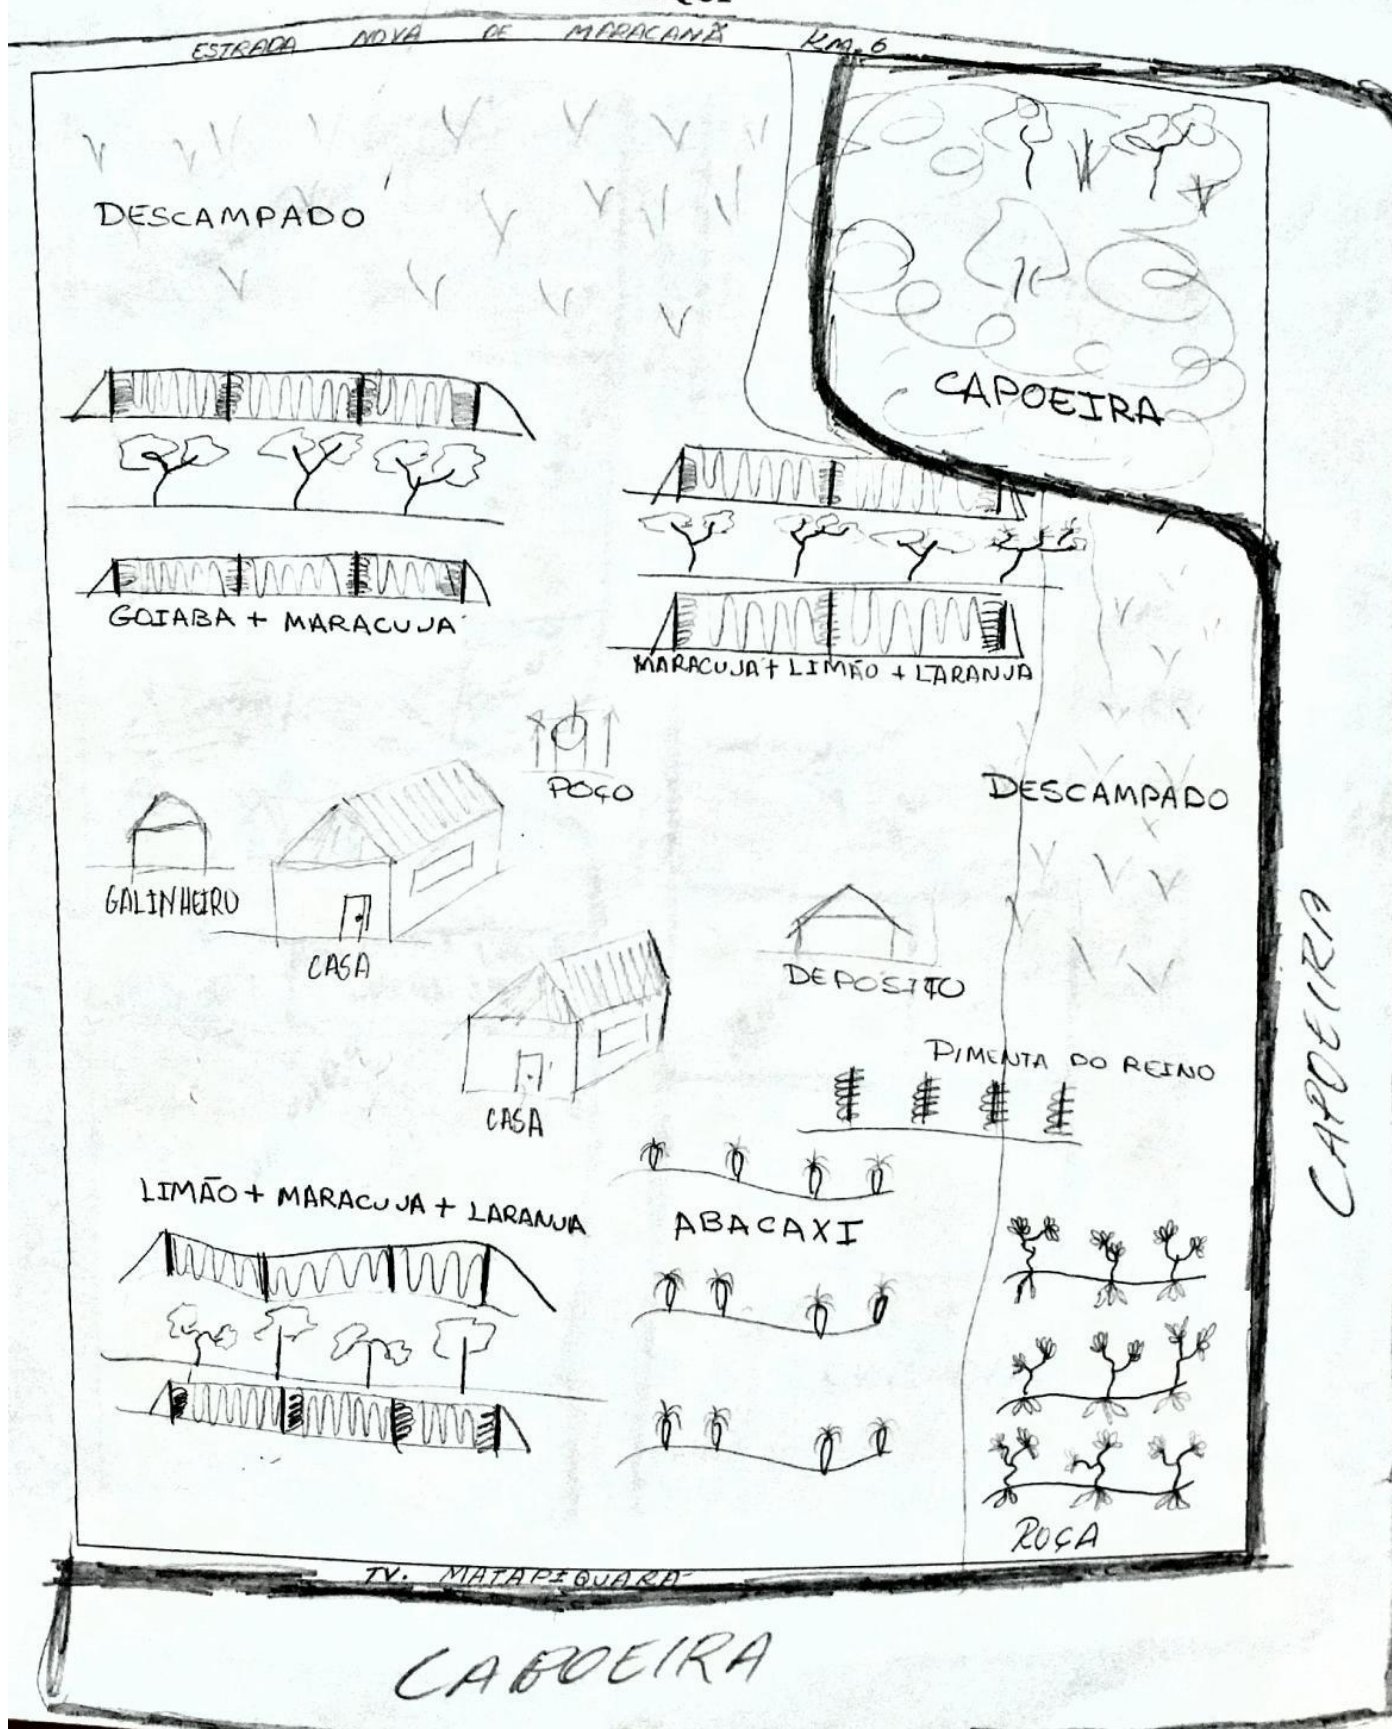 ESTRADA NOVA DE MARACANÃ KM. 6
DESCAMPADO
CAPOEIRA
GOIABA + MARACUJA
MARACUJA + LIMÃO + LARANJA
POÇO
DESCAMPADO
GALINHEIRO
CASA
DEPOSITO
CASA
PIMENTA DO REINO
LIMÃO + MARACUJA + LARANJA
ABACAXI
ROÇA
CAPOEIRA
TV. MATAPIQUARA
CAPOEIRA